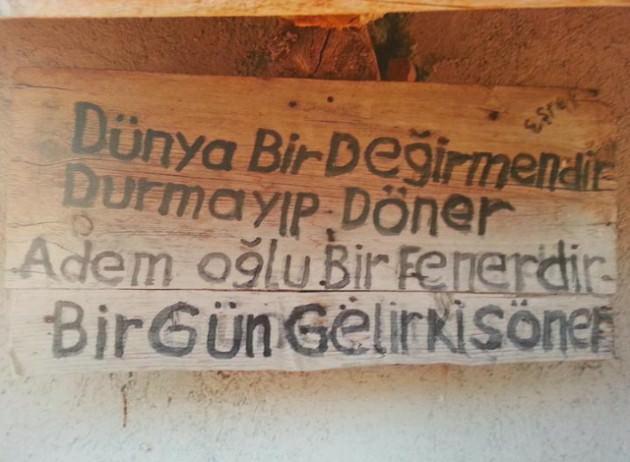 Eşref
Dünya Bir Değirmendir
Durmayıp Döner
Adem oğlu Bir Fenerdir
Bir Gün Gelirki Söner